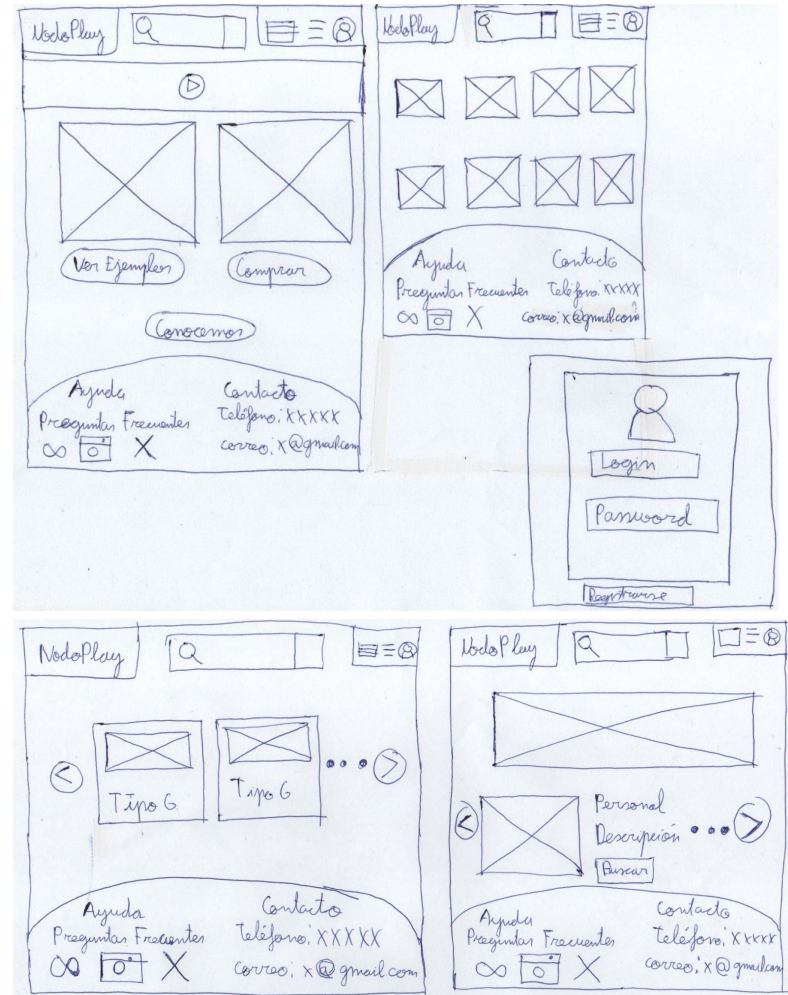 NodoPlay
Ver Ejemplos
Comprar
Conocenos
Ayuda
Contacto
Preguntas Frecuentes
Teléfono: XXXXX
correo: x@gmail.com
NodoPlay
Ayuda
Contacto
Preguntas Frecuentes
Teléfono: XXXXX
correo: x@gmail.com
Login
Password
Registrarse
NodoPlay
Tipo G
Tipo G
Ayuda
Contacto
Preguntas Frecuentes
Teléfono: XXXXX
correo: x@gmail.com
NodoPlay
Personal
Descripción
Buscar
Ayuda
Contacto
Preguntas Frecuentes
Teléfono: XXXXX
correo: x@gmail.com